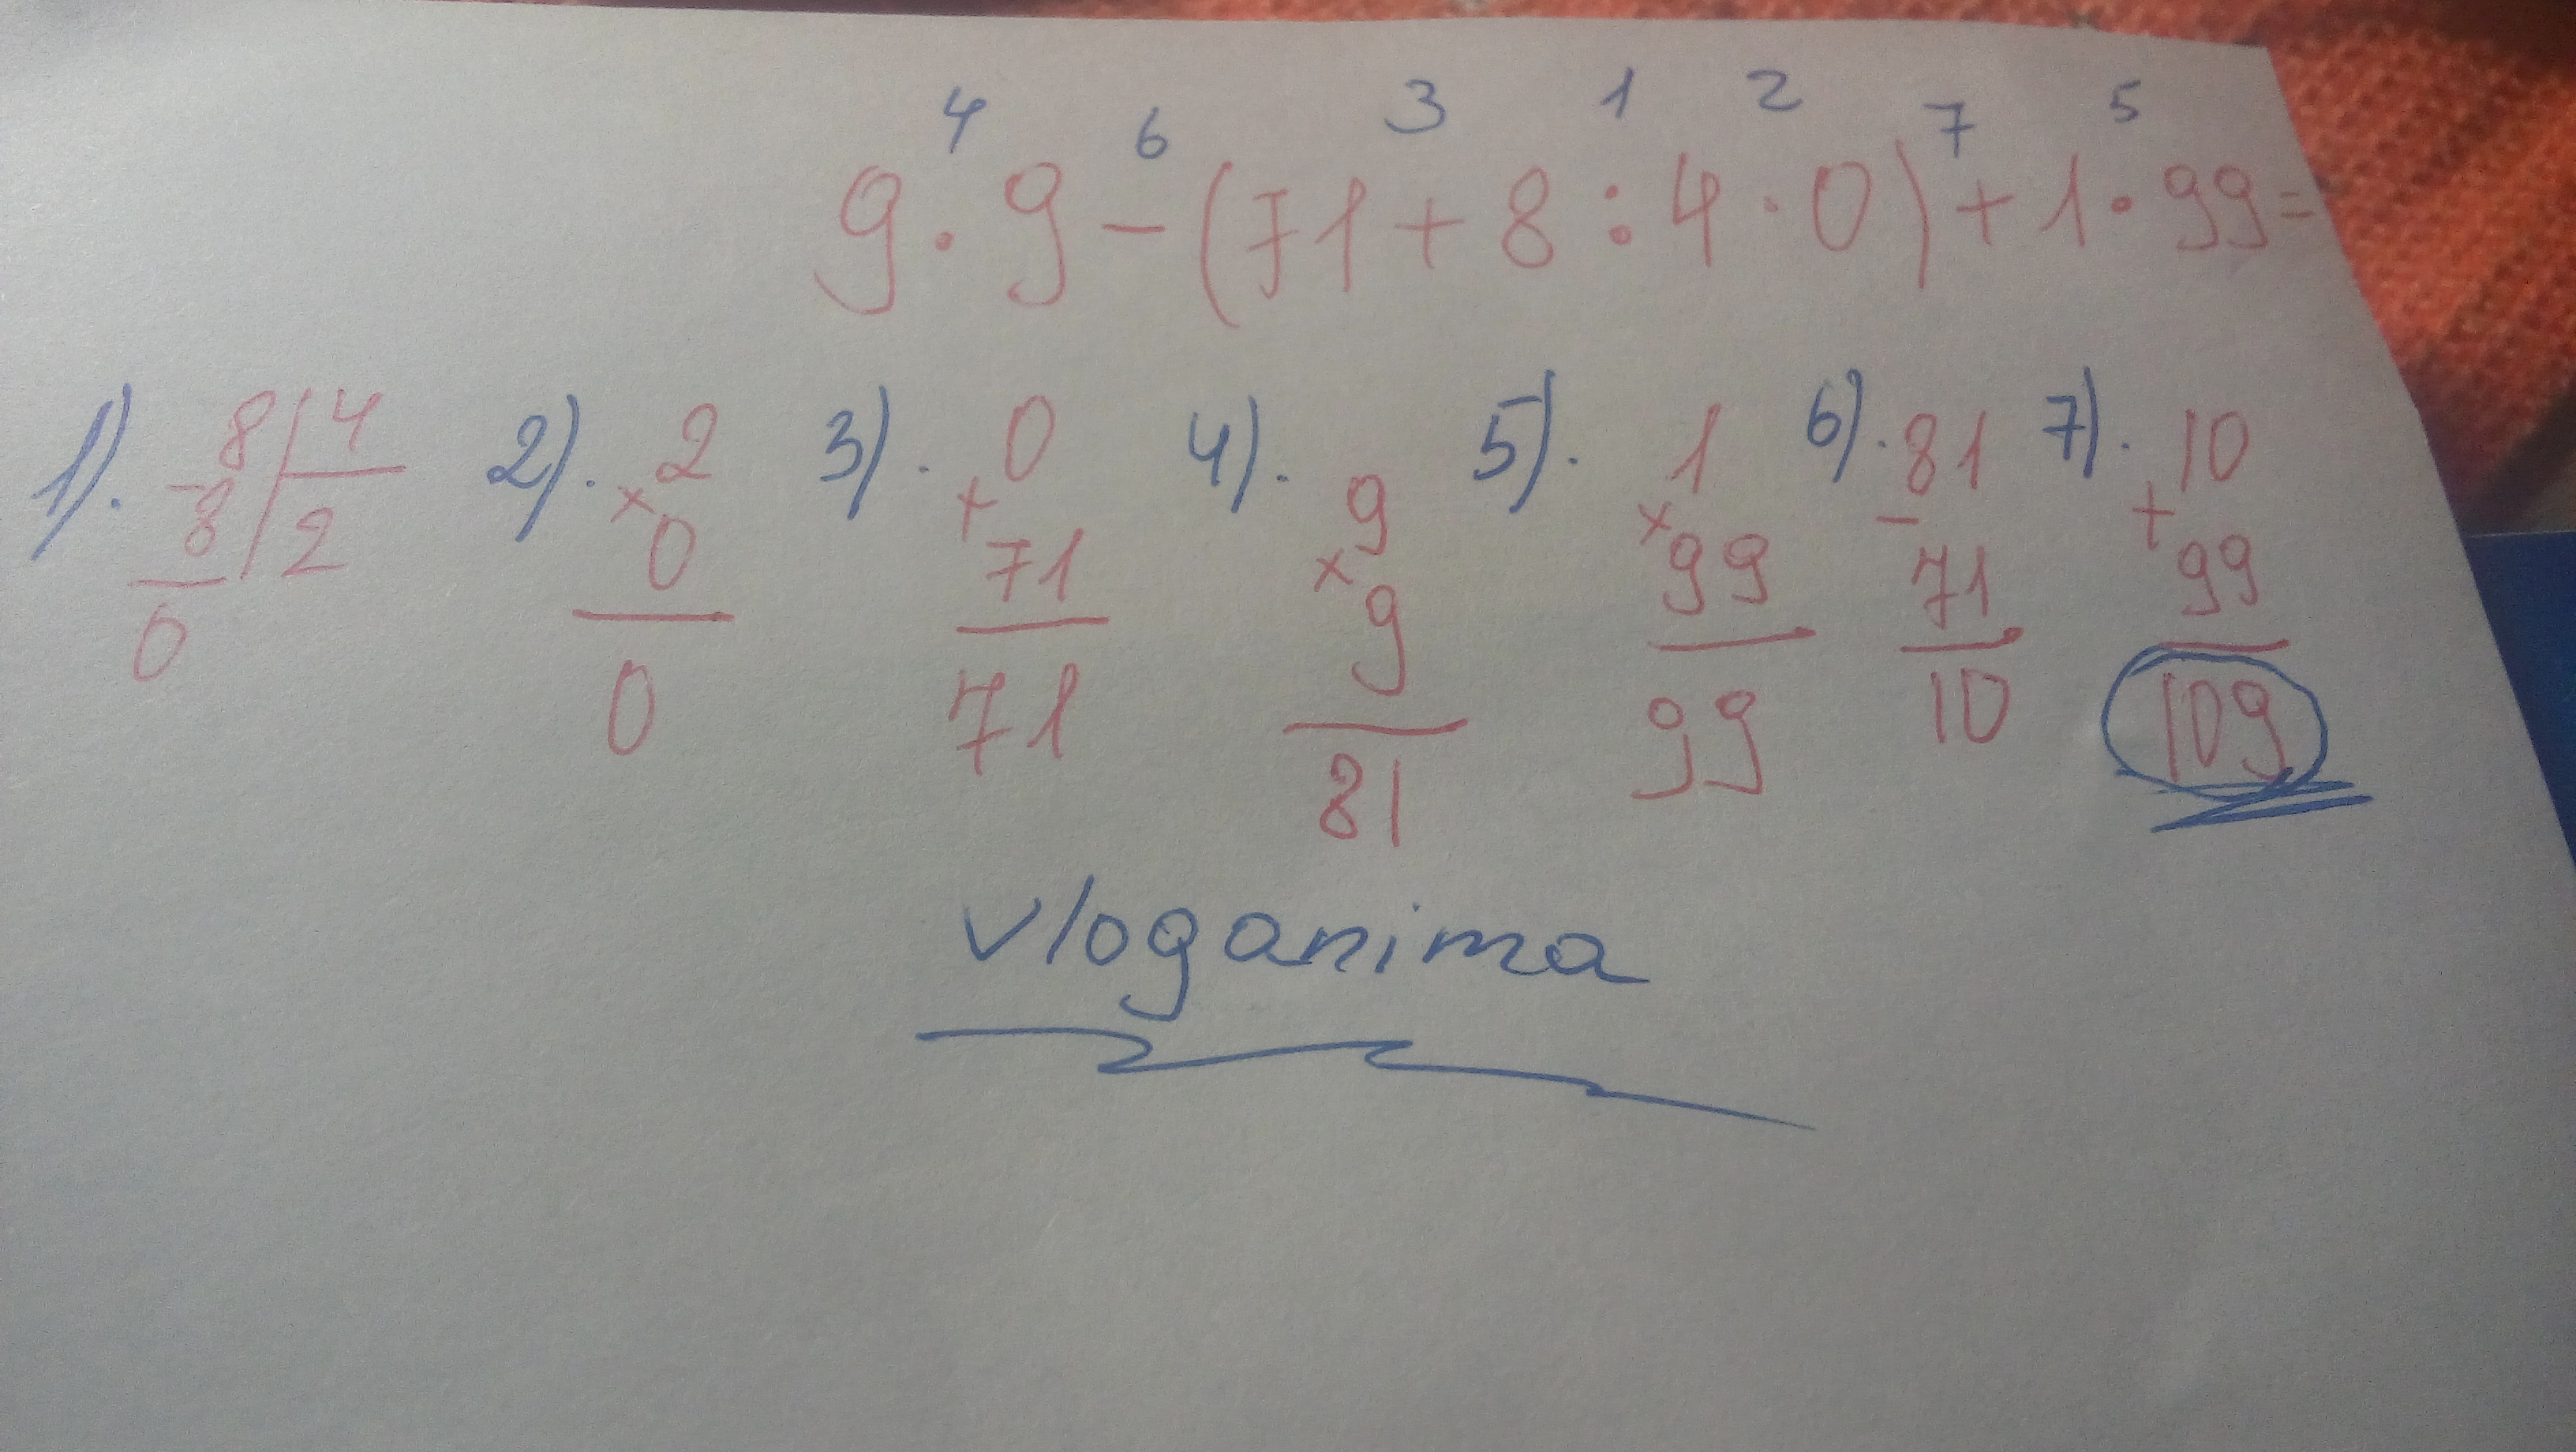 4 6 3 1 2 7 5
9·9-(71+8:4·0)+1·99=
1). 2). 3). 4). 5). 6). 7).
8 4 2 0 9 1 81 10
-8 2 ×0 +71 ×9 ×99 -71 +99
0 0 71 81 99 10 109
vloganima